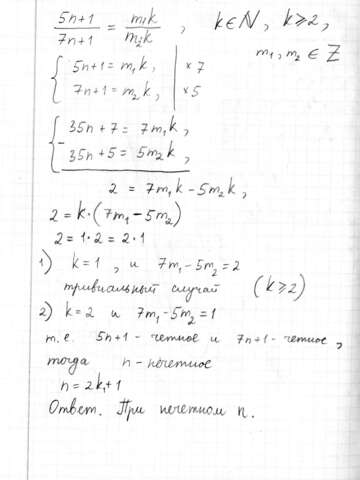 (5n+1)/(7n+1) = (m₁k)/(m₂k) , k∈N, k⩾2,
m₁, m₂ ∈ Z
{ 5n+1 = m₁k, | ×7
7n+1 = m₂k, | ×5
{ 35n+7 = 7m₁k,
- 35n+5 = 5m₂k,
2 = 7m₁k - 5m₂k,
2 = k·(7m₁ - 5m₂)
2 = 1·2 = 2·1
1) k=1 , и 7m₁-5m₂=2
тривиальный случай (k⩾2)
2) k=2 и 7m₁-5m₂=1
т.е. 5n+1 - четное и 7n+1 - четное,
тогда n - нечетное
n = 2k₁+1
Ответ. При нечетном n.